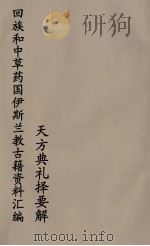 天方典礼择要解
回族和中草药国伊斯兰教古籍资料汇编
www.duxiu.com